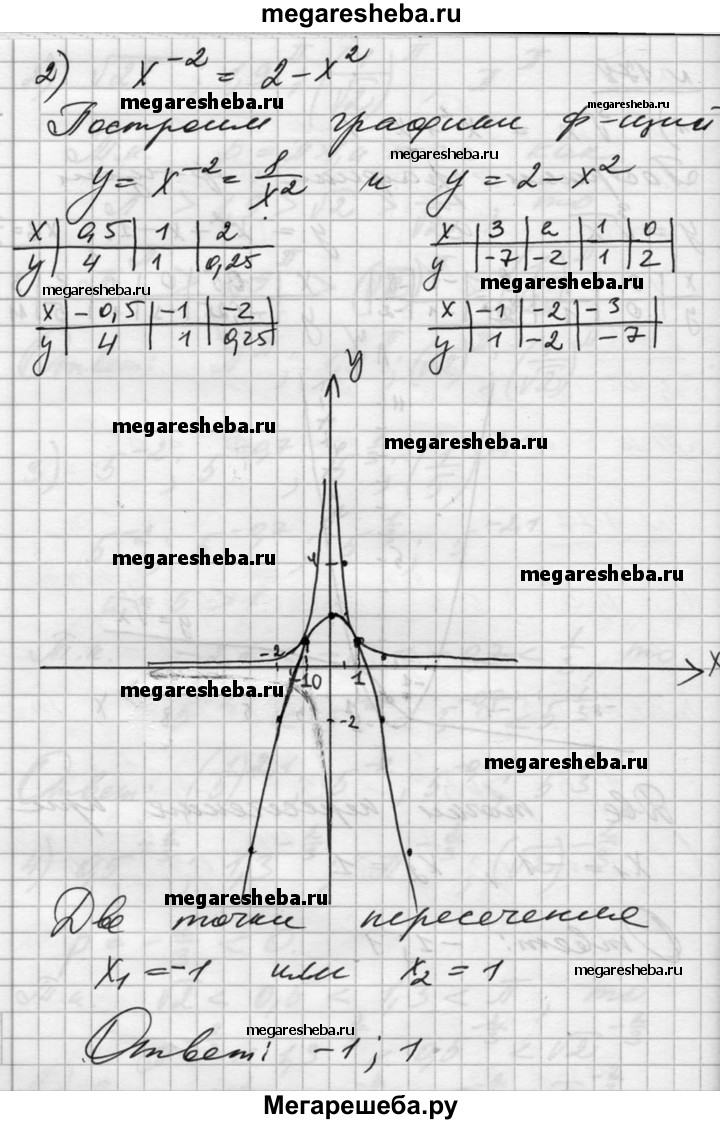 megaresheba.ru
2) x⁻² = 2 - x²
megaresheba.ru megaresheba.ru
megaresheba.ru
Построим графики ф-ций
megaresheba.ru
y = x⁻² = 1/x² и y = 2 - x²
x | 0,5 | 1 | 2
y | 4 | 1 | 0,25
x | 3 | 2 | 1 | 0
y | -7 | -2 | 1 | 2
megaresheba.ru megaresheba.ru
x | -0,5 | -1 | -2
y | 4 | 1 | 0,25
x | -1 | -2 | -3
y | 1 | -2 | -7
y
megaresheba.ru
megaresheba.ru
megaresheba.ru
4
megaresheba.ru
-2
-1 0 1 x
megaresheba.ru
-2
megaresheba.ru
megaresheba.ru
Две точки пересечения
x₁ = -1 или x₂ = 1
megaresheba.ru
megaresheba.ru
Ответ: -1; 1
Мегарешеба.ру